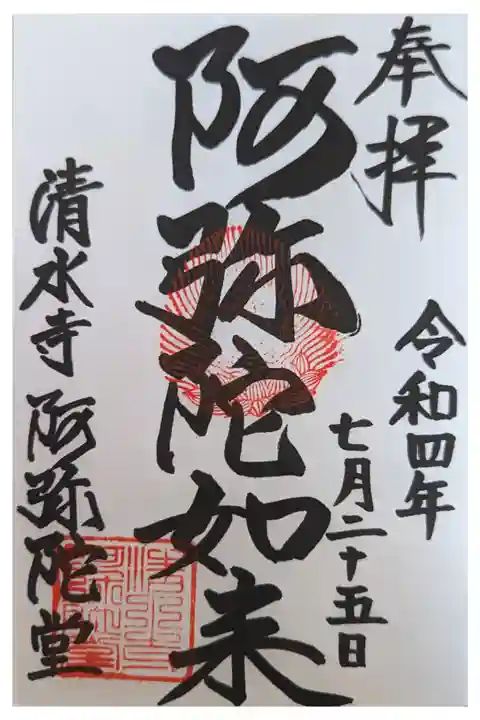 奉拝
令和四年
七月二十五日
阿弥陀如来
清水寺阿弥陀堂